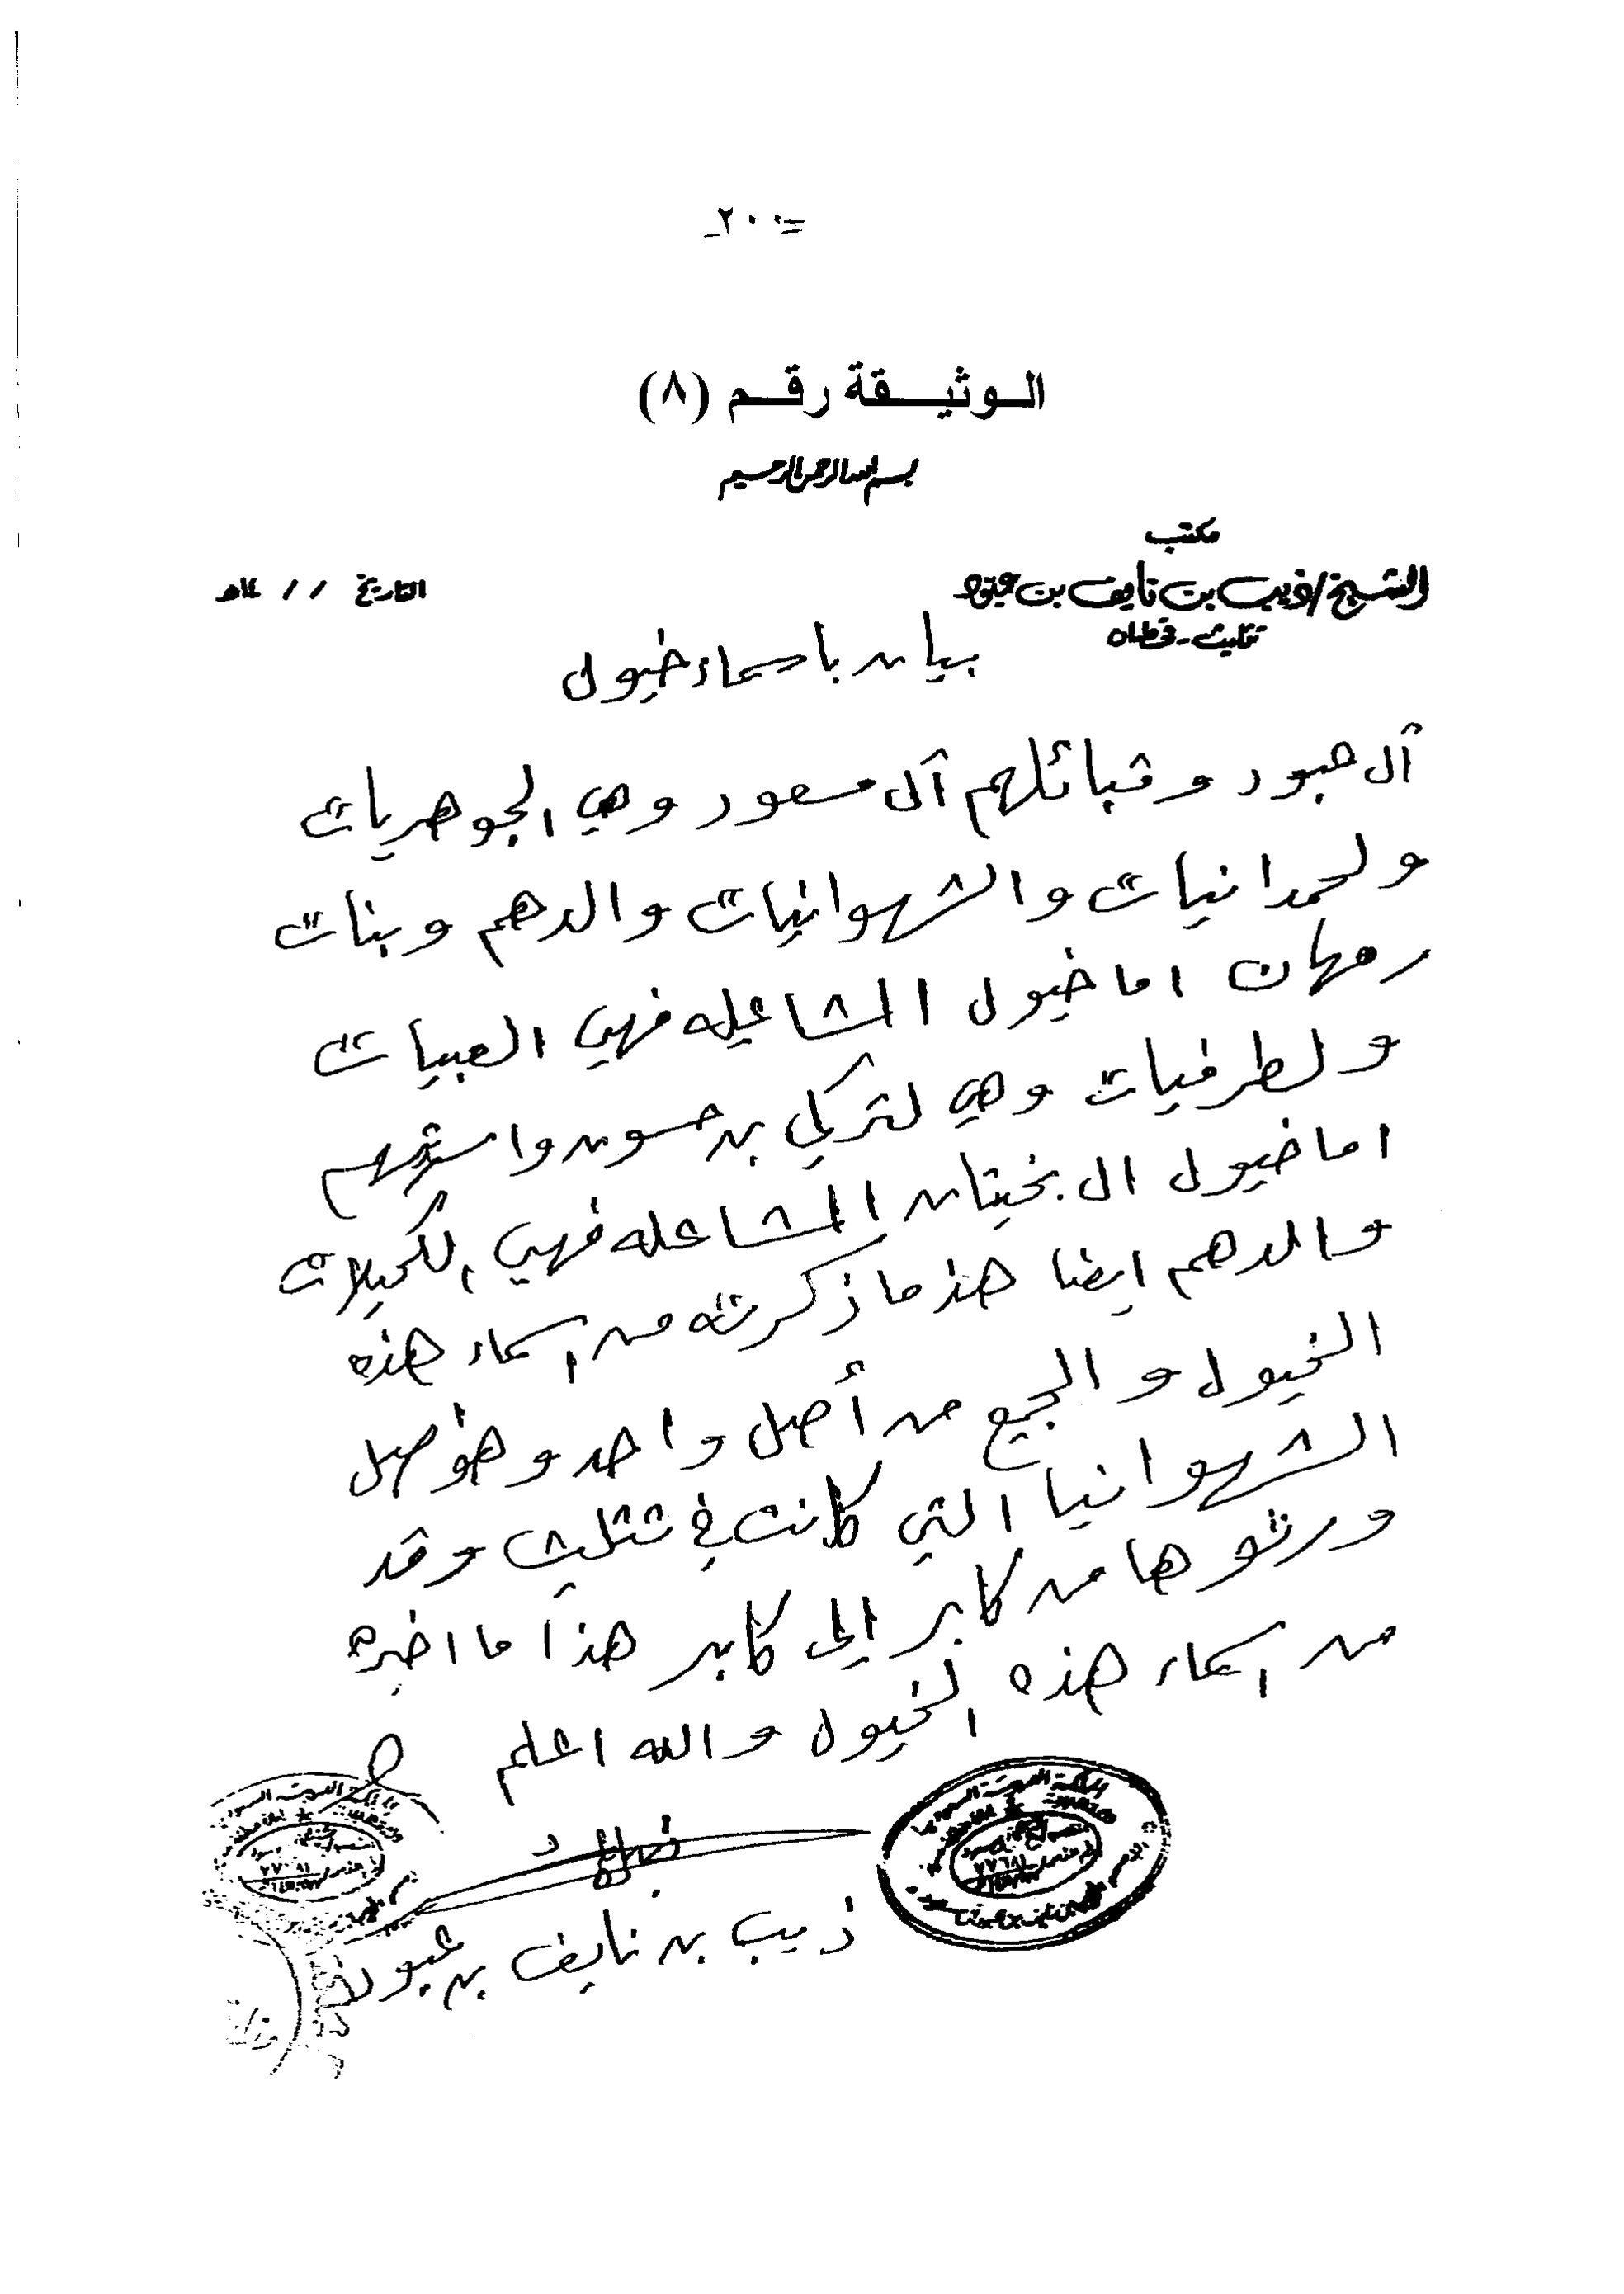 ـ٢٠٠ـ
الوثيقة رقم (٨)
بسم الله الرحمن الرحيم
مكتب
الشيخ/ذيب بن نايف بن عبود
تثليث - قحطان
التاريخ / / ١٤هـ
بيان باسماء خيول
آل عبود وقبائلهم آل مسعود وهي الجوهريات
ولحمدانيات والشهوانيات والدهم وبنات
رمهان اما خيول المشاعيله فهي العبيات
ولطرفيات وهي لتركي بن حسون واسرتهم
اما خيول ال بخيتان المشاعله فهي الكحيلات
والدهم ايضا هذ ما ذكرته من اسماء هذه
الخيول والجميع من أصل واحد وهو اصل
الشهوانيا التي كانت في تثليث وقد
ورثوها من كابر إلى كابر هذا ما اخبره
من اسماء هذه الخيول والله اعلم
ذيب بن نايف بن عبود
المملكة العربية السعودية